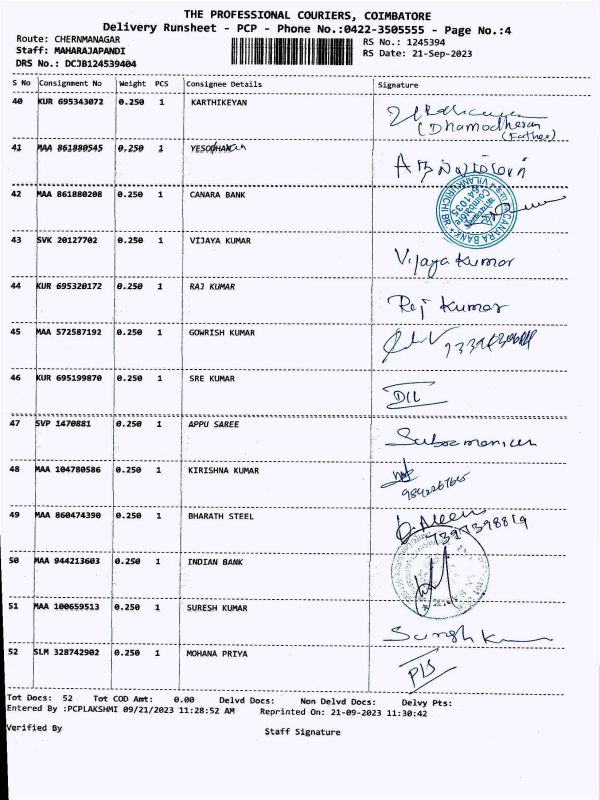 THE PROFESSIONAL COURIERS, COIMBATORE
Delivery Runsheet - PCP - Phone No.:0422-3505555 - Page No.:4
Route: CHERNMANAGAR RS No.: 1245394
Staff: MAHARAJAPANDI RS Date: 21-Sep-2023
DRS No.: DCJB124539404
S No Consignment No Weight PCS Consignee Details Signature
40 KUR 695343072 0.250 1 KARTHIKEYAN
(Dhamodheran
(Father)
41 MAA 861880545 0.250 1
42 MAA 861880208 0.250 1 CANARA BANK
CANARA BANK
Coimbatore
641035
43 SVK 20127702 0.250 1 VIJAYA KUMAR
Vijaya Kumar
44 KUR 695320172 0.250 1 RAJ KUMAR
Raj Kumar
45 MAA 572587192 0.250 1 GOWRISH KUMAR
46 KUR 695199870 0.250 1 SRE KUMAR
47 SVP 1470881 0.250 1 APPU SAREE
48 MAA 104780586 0.250 1 KIRISHNA KUMAR
49 MAA 860474390 0.250 1 BHARATH STEEL
7397398819
50 MAA 944213603 0.250 1 INDIAN BANK
51 MAA 100659513 0.250 1 SURESH KUMAR
52 SLM 328742902 0.250 1 MOHANA PRIYA
Tot Docs: 52 Tot COD Amt: 0.00 Delvd Docs: Non Delvd Docs: Delvy Pts:
Entered By :PCPLAKSHMI 09/21/2023 11:28:52 AM Reprinted On: 21-09-2023 11:30:42
Verified By Staff Signature